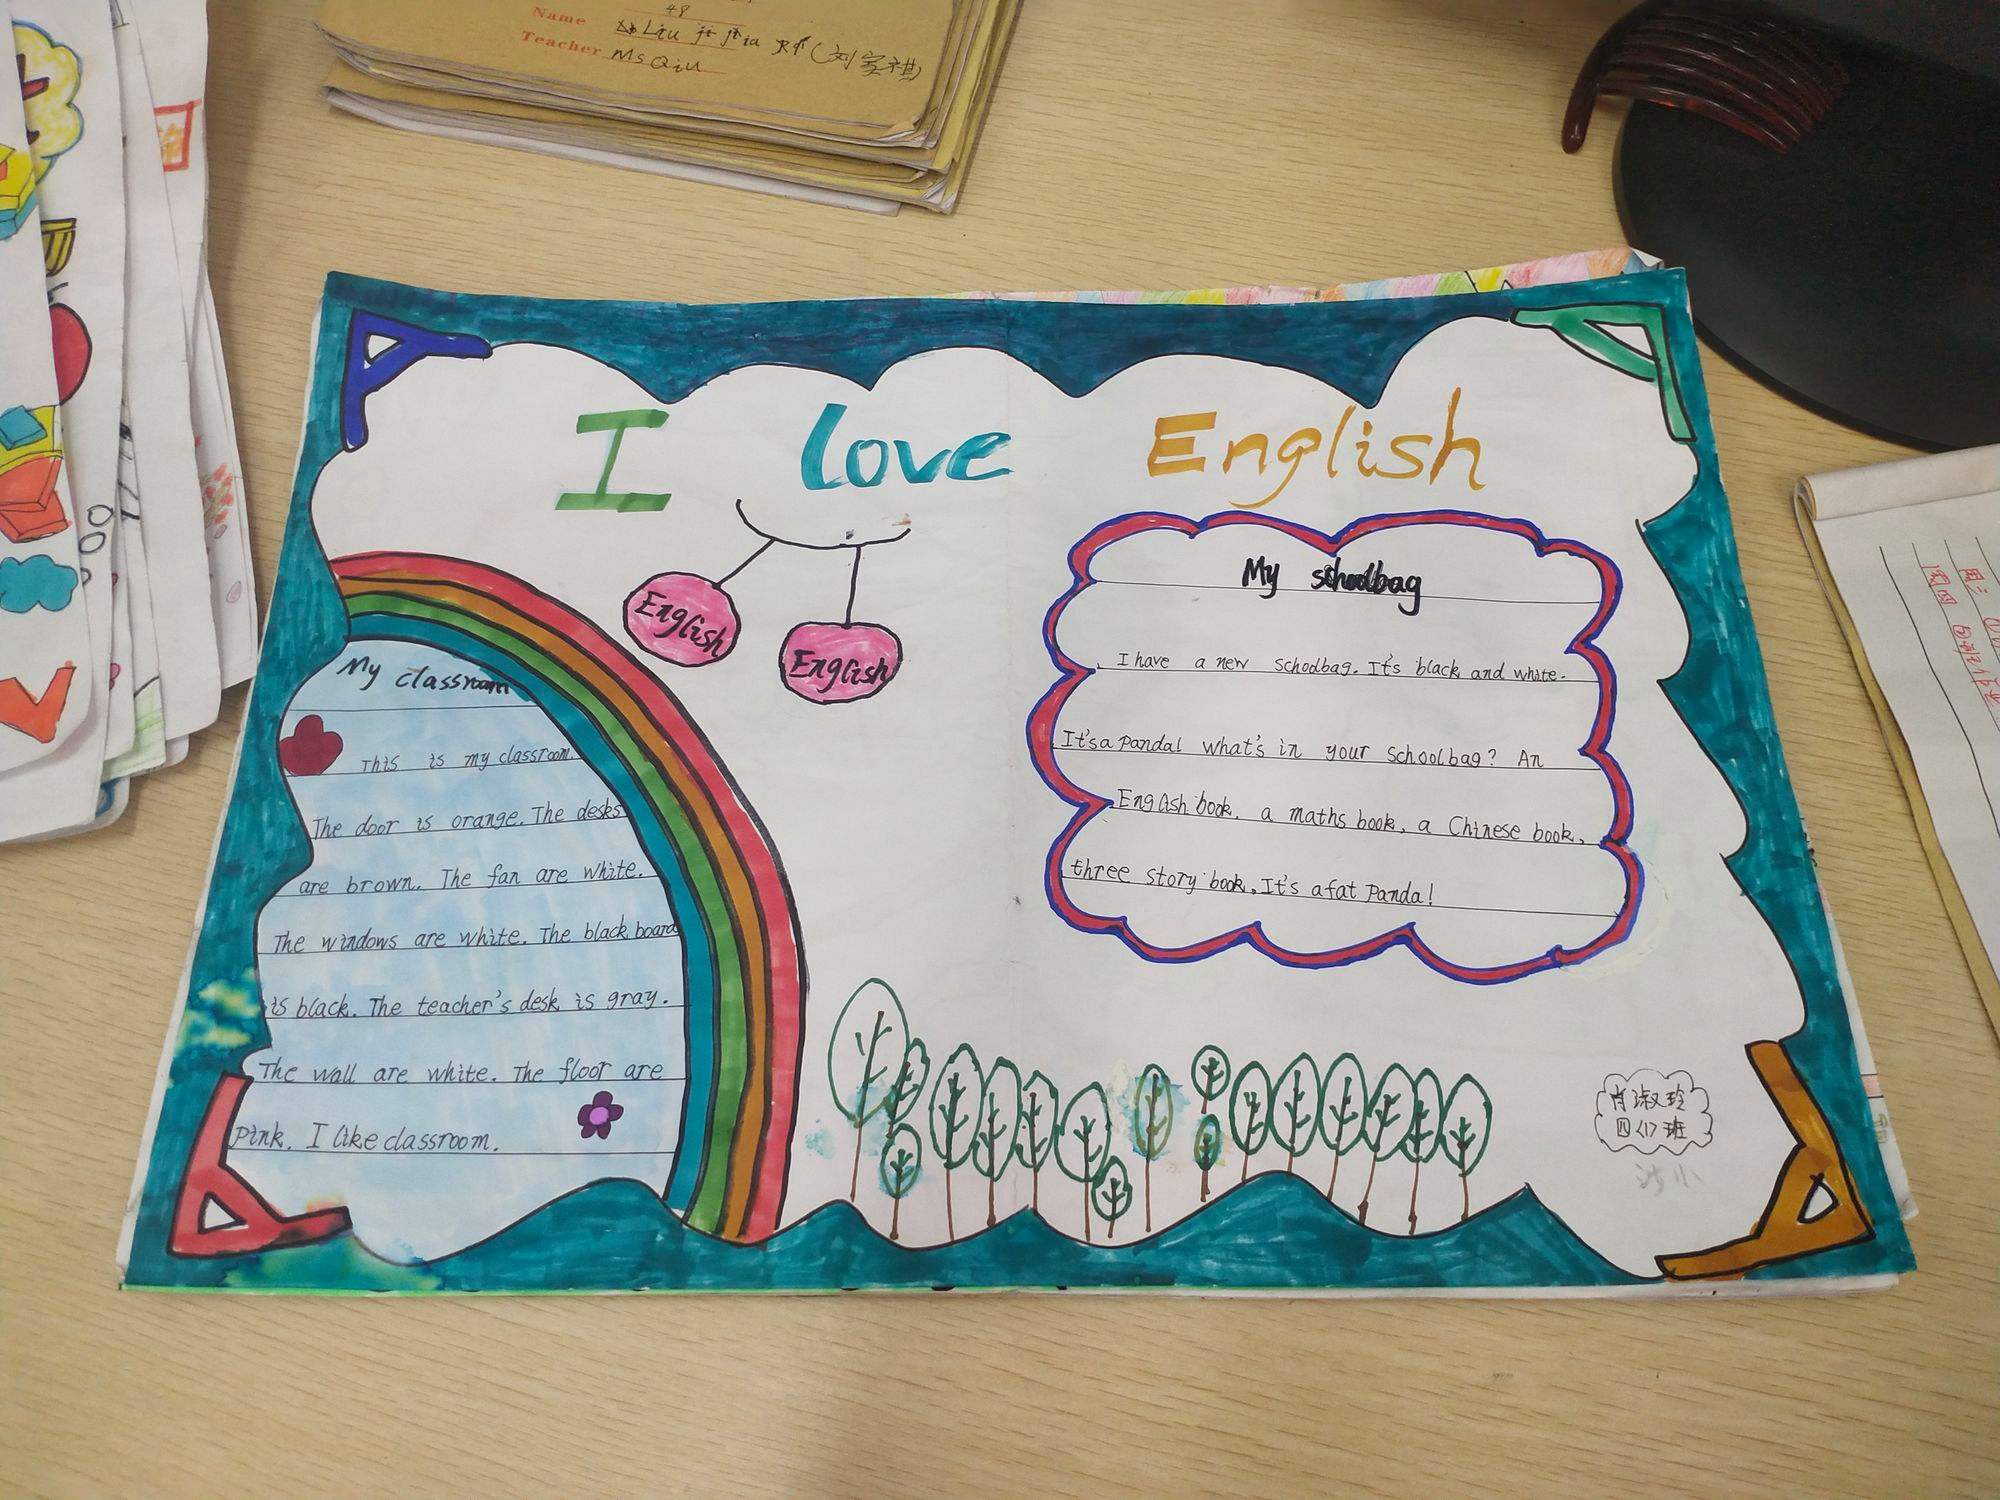 48
Name Liu
Teacher Ms Qiu
I love English
English
English
My classroom
This is my classroom.
The door is orange. The desks
are brown. The fan are white.
The windows are white. The black board
is black. The teacher's desk is gray.
The wall are white. The floor are
Pink. I like classroom.
My schoolbag
I have a new schoolbag. It's black and white.
It's a Panda! what's in your schoolbag? An
English book, a maths book, a Chinese book,
three story book. It's a fat Panda!
肖淑玲
四<1>班